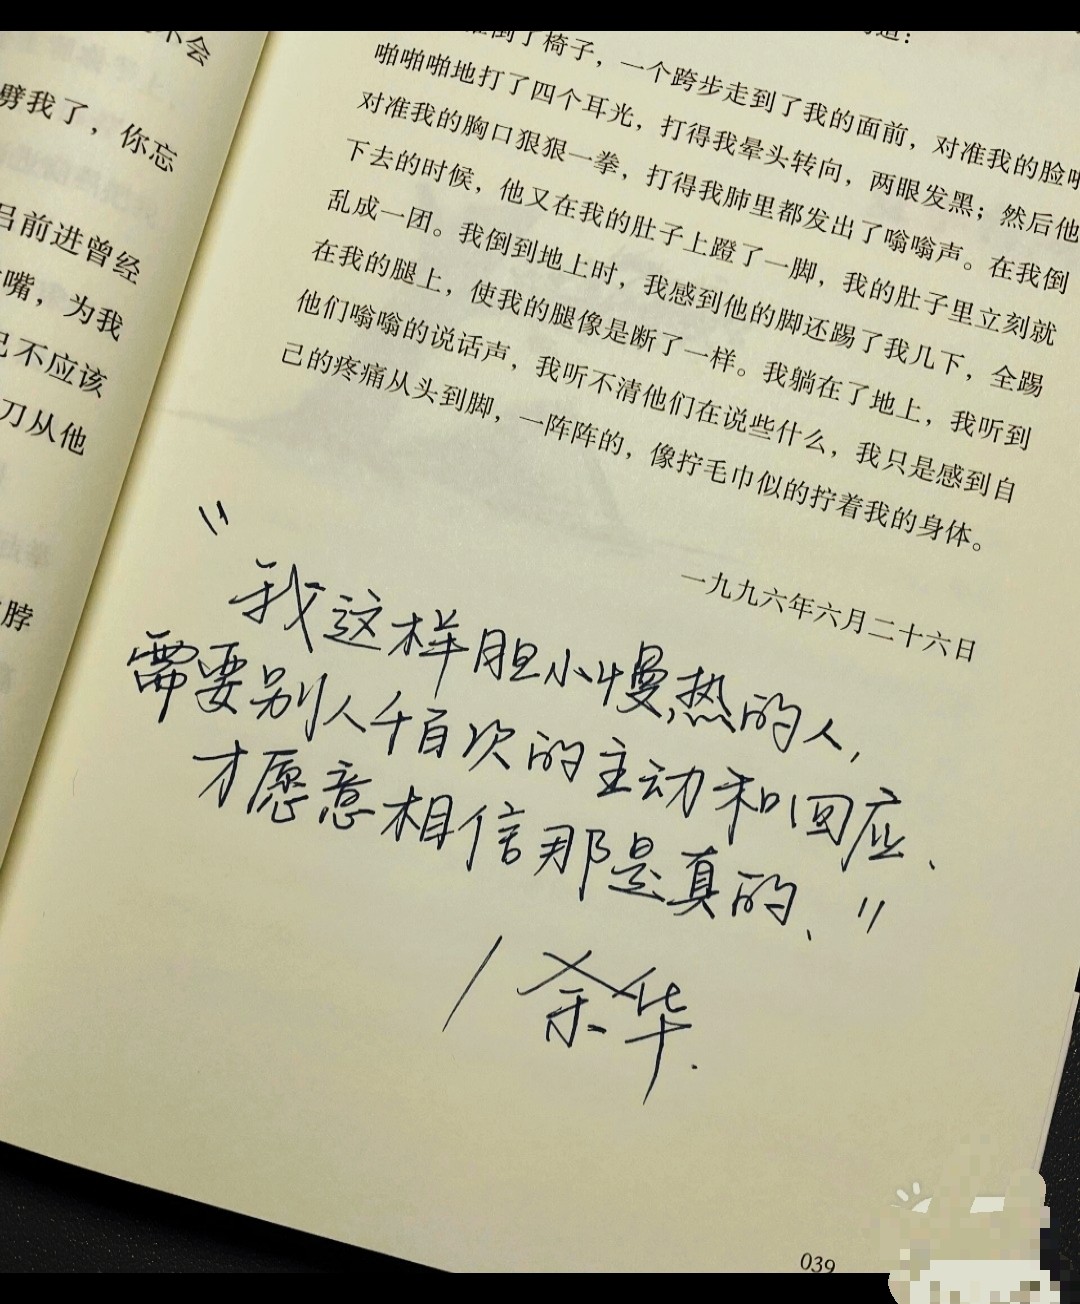 不会
劈我了，你忘
吕前进曾经
嘴，为我
己不应该
刀从他
脖
倒了椅子，一个跨步走到了我的面前，对准我的脸啪
啪啪啪地打了四个耳光，打得我晕头转向，两眼发黑；然后他
对准我的胸口狠狠一拳，打得我肺里都发出了嗡嗡声。在我倒
下去的时候，他又在我的肚子上蹬了一脚，我的肚子里立刻就
乱成一团。我倒到地上时，我感到他的脚还踢了我几下，全踢
在我的腿上，使我的腿像是断了一样。我躺在了地上，我听到
他们嗡嗡的说话声，我听不清他们在说些什么，我只是感到自
己的疼痛从头到脚，一阵阵的，像拧毛巾似的拧着我的身体。
一九九六年六月二十六日
"我这样胆小慢热的人，
需要别人千百次的主动和回应、
才愿意相信那是真的、"
/余华.
039